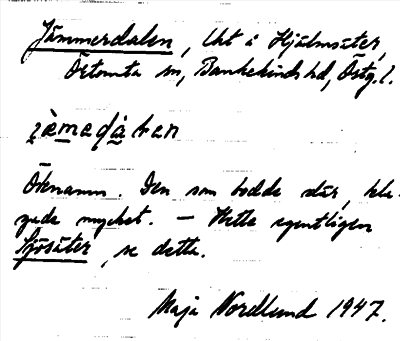 Jämmerdalen, Uht å Hjälmsäter,
Örtomta sn, Bankekinds hd, Östg. l.
Öknamn. Den som bodde där, kla-
gade mycket. – Hette egentligen
Sjösäter, se detta.
Maja Nordlund 1947.